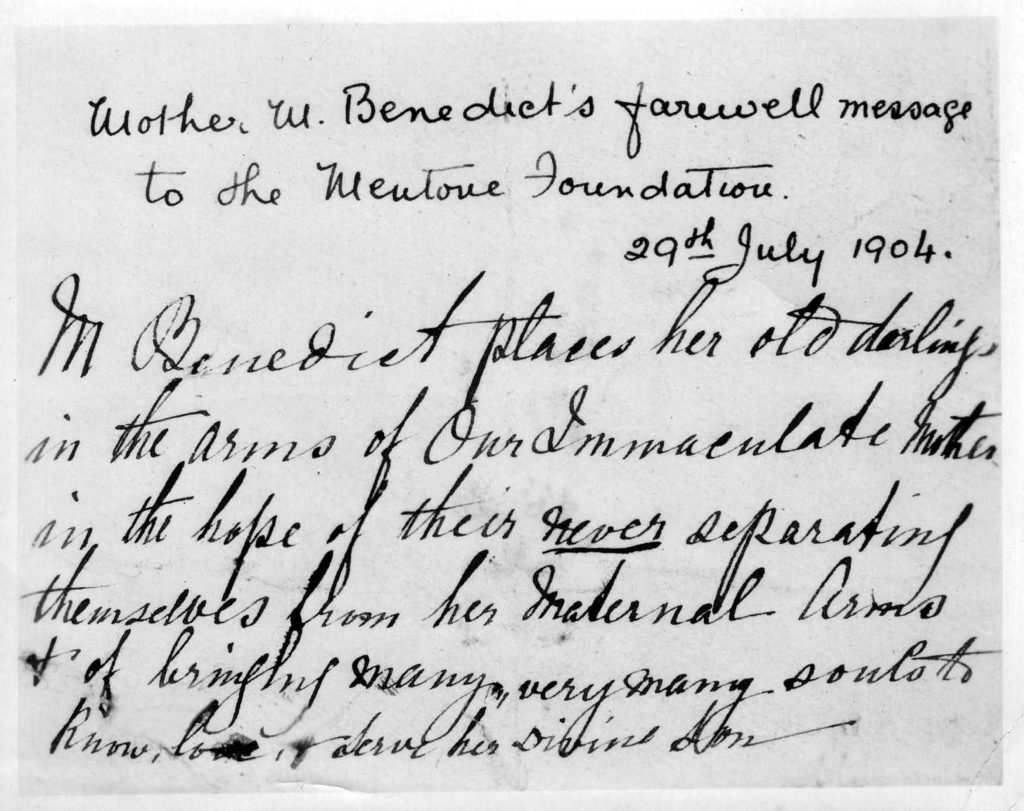 Mother M. Benedict's farewell message
to the Mentone Foundation.
29th July 1904.
M Benedict places her old darlings
in the arms of Our Immaculate Mother
in the hope of their never separating
themselves from her Maternal Arms
& of bringing many, very many souls to
Know, love, & serve her Divine Son